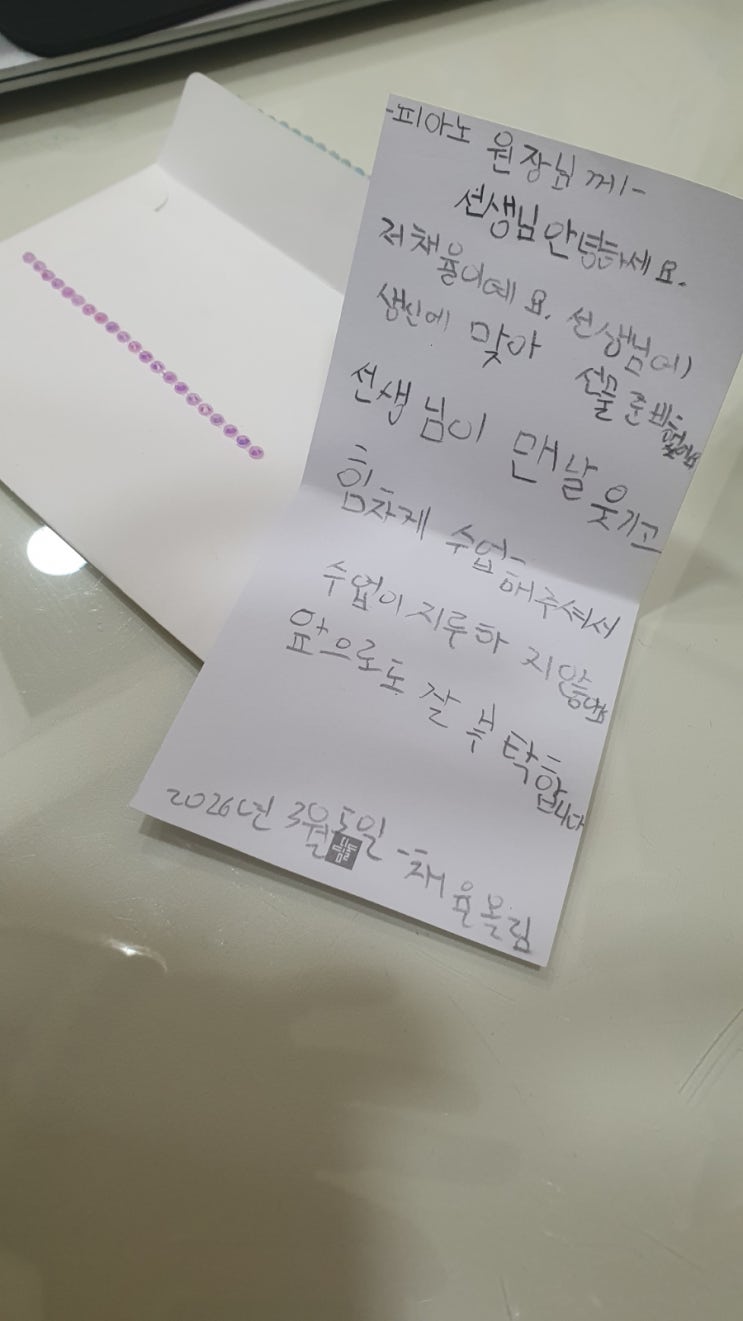 -피아노 원장님께-
선생님 안녕하세요.
저 채윤이예요. 선생님이
생신에 맞아 선물 준비했어요
선생님이 맨날 웃기고
힘차게 수업 해주셔서
수업이 지루하지 않
앞으로도 잘 부탁합니다
2026년 3월 5일 -채윤올림